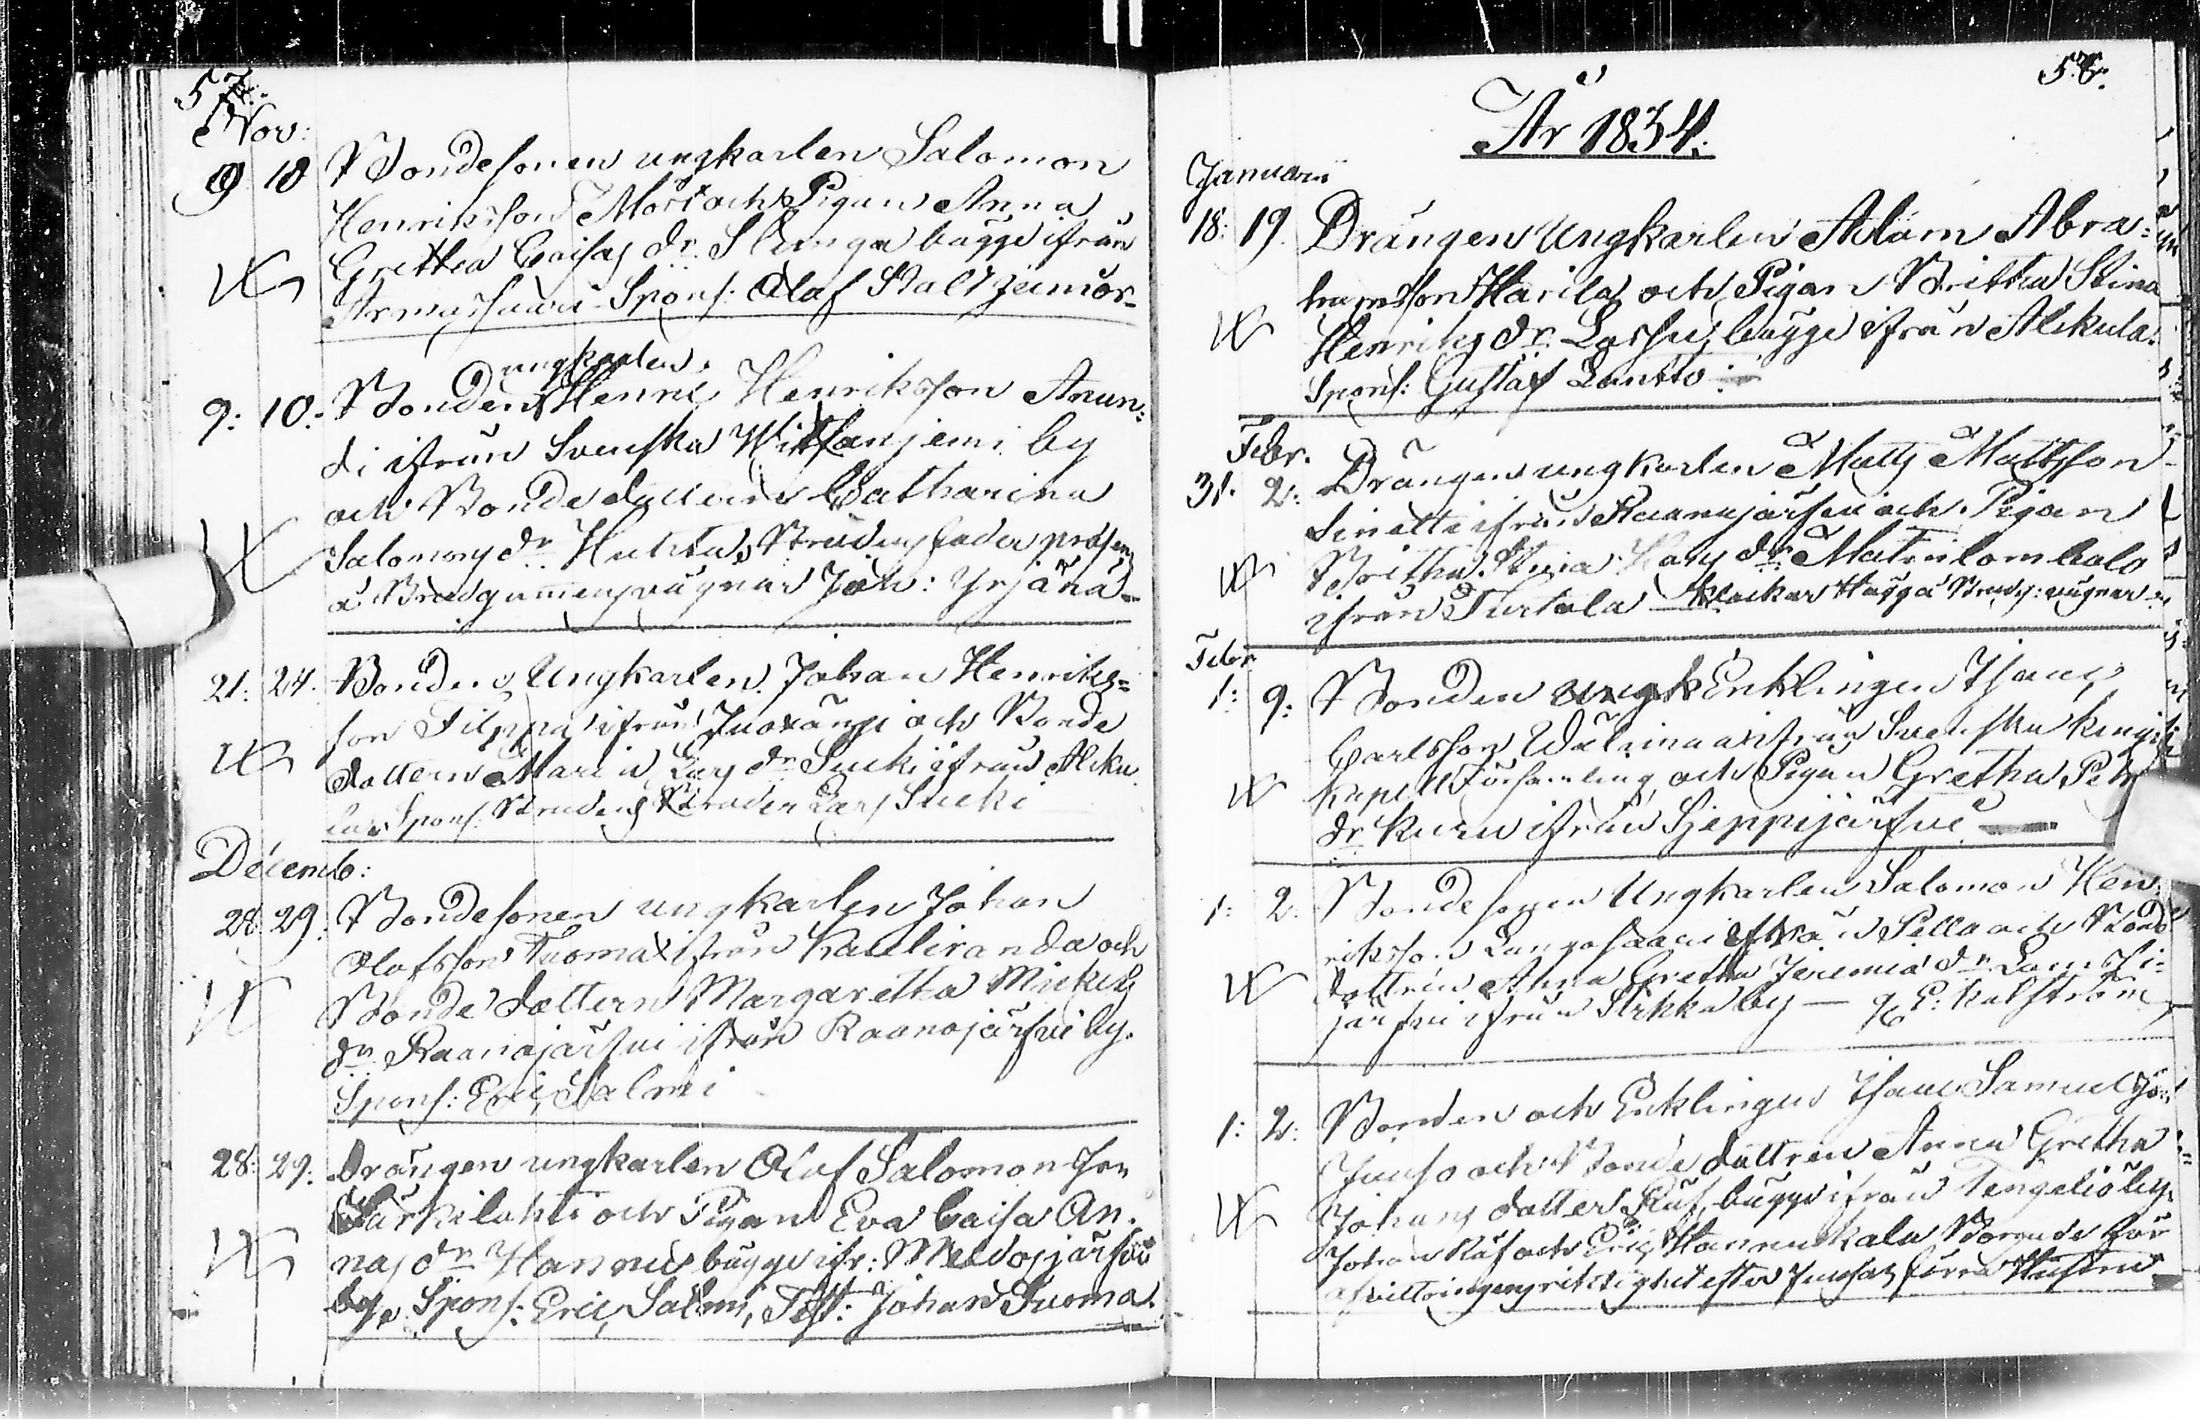 57.
Nov:
9 10 Bondesonen ungkarlen Salomon
Henriksson Mört och Pigan Anna
Gretha Caisa dr. bägge ifrån
Armassaari Spons: Olof Stalt junior
ungkarlen
9: 10. Bonden Henric Henriksson Anun-
di ifrån Svenska Wittaniemi by
och Bonde dotteren Catharina
Salomons dr Huhta, Brudens fader præsens
å Brudgummens vägnar Joh: Yrjänä
21. 24. Bonden, Ungkarlen Johan Henriks-
son Filppa ifrån Juoxängi och Bonde
dottern Maria Lars dr Sucki ifrån Alku
la, Spons. Brudens Broder Lars Sucki
Decemb:
28. 29. Bondesonen ungkarlen Johan
Olofsson Tuomas ifrån Kauliranda och
Bonde dottern Margaretta Mickels
dr Raanojärfvi ifrån Raanojärfvi by.
Spons: Eric Salmi
28: 29. Drängen ungkarlen Olof Salomonsson
Särkilahti och Pigan Eva Caisa An-
nas dr Hannus bägge ifr: Meldosjärfvi
by. Spons: Eric Salmi, Test: Johan Tuoma.
58.
År 1834.
Januarii
18: 19. Drängen Ungkarlen Adam Abra-
hamsson Harila och Pigan Britha Stina
Henriks dr. Lassu, bägge ifrån Alkula.
Spons: Gustaf Lantto
Febr.
31. 2. Drängen ungkarlen Matts Mattsson
Sinetti ifrån Raanujärfvi och Pigan
Britha Stina Lars dr. Matinlombolo
ifrån Turtola Klockar Hägg å Bruds: vägnar
Febr
1: 9: Bonden Enklingen Isaac
Carlsson Wälimaa ifrån Svenska Kengis
Kapell Församling, och Pigan Gretha Pehrs
dr Kuru ifrån Sjeppijärfvi
1: 2. Bondesonen Ungkarlen Salomon Hen
riksson ifrån Pello och Bond
dottren Anna Gretha Jeremiæ dr Lam
järfvi ifrån Sirkka by — P. Kalström
1: 2: Bonden och Enklingen Isaac Samuelsson
Juuso och Bonde dottren Anna Gretha
Johans dotter Räf, bägge ifrån Tengeliö by
Johan Räf och Eric Hannukala Borgade för
afvittringens riktighet efter Juusos förra Hustru